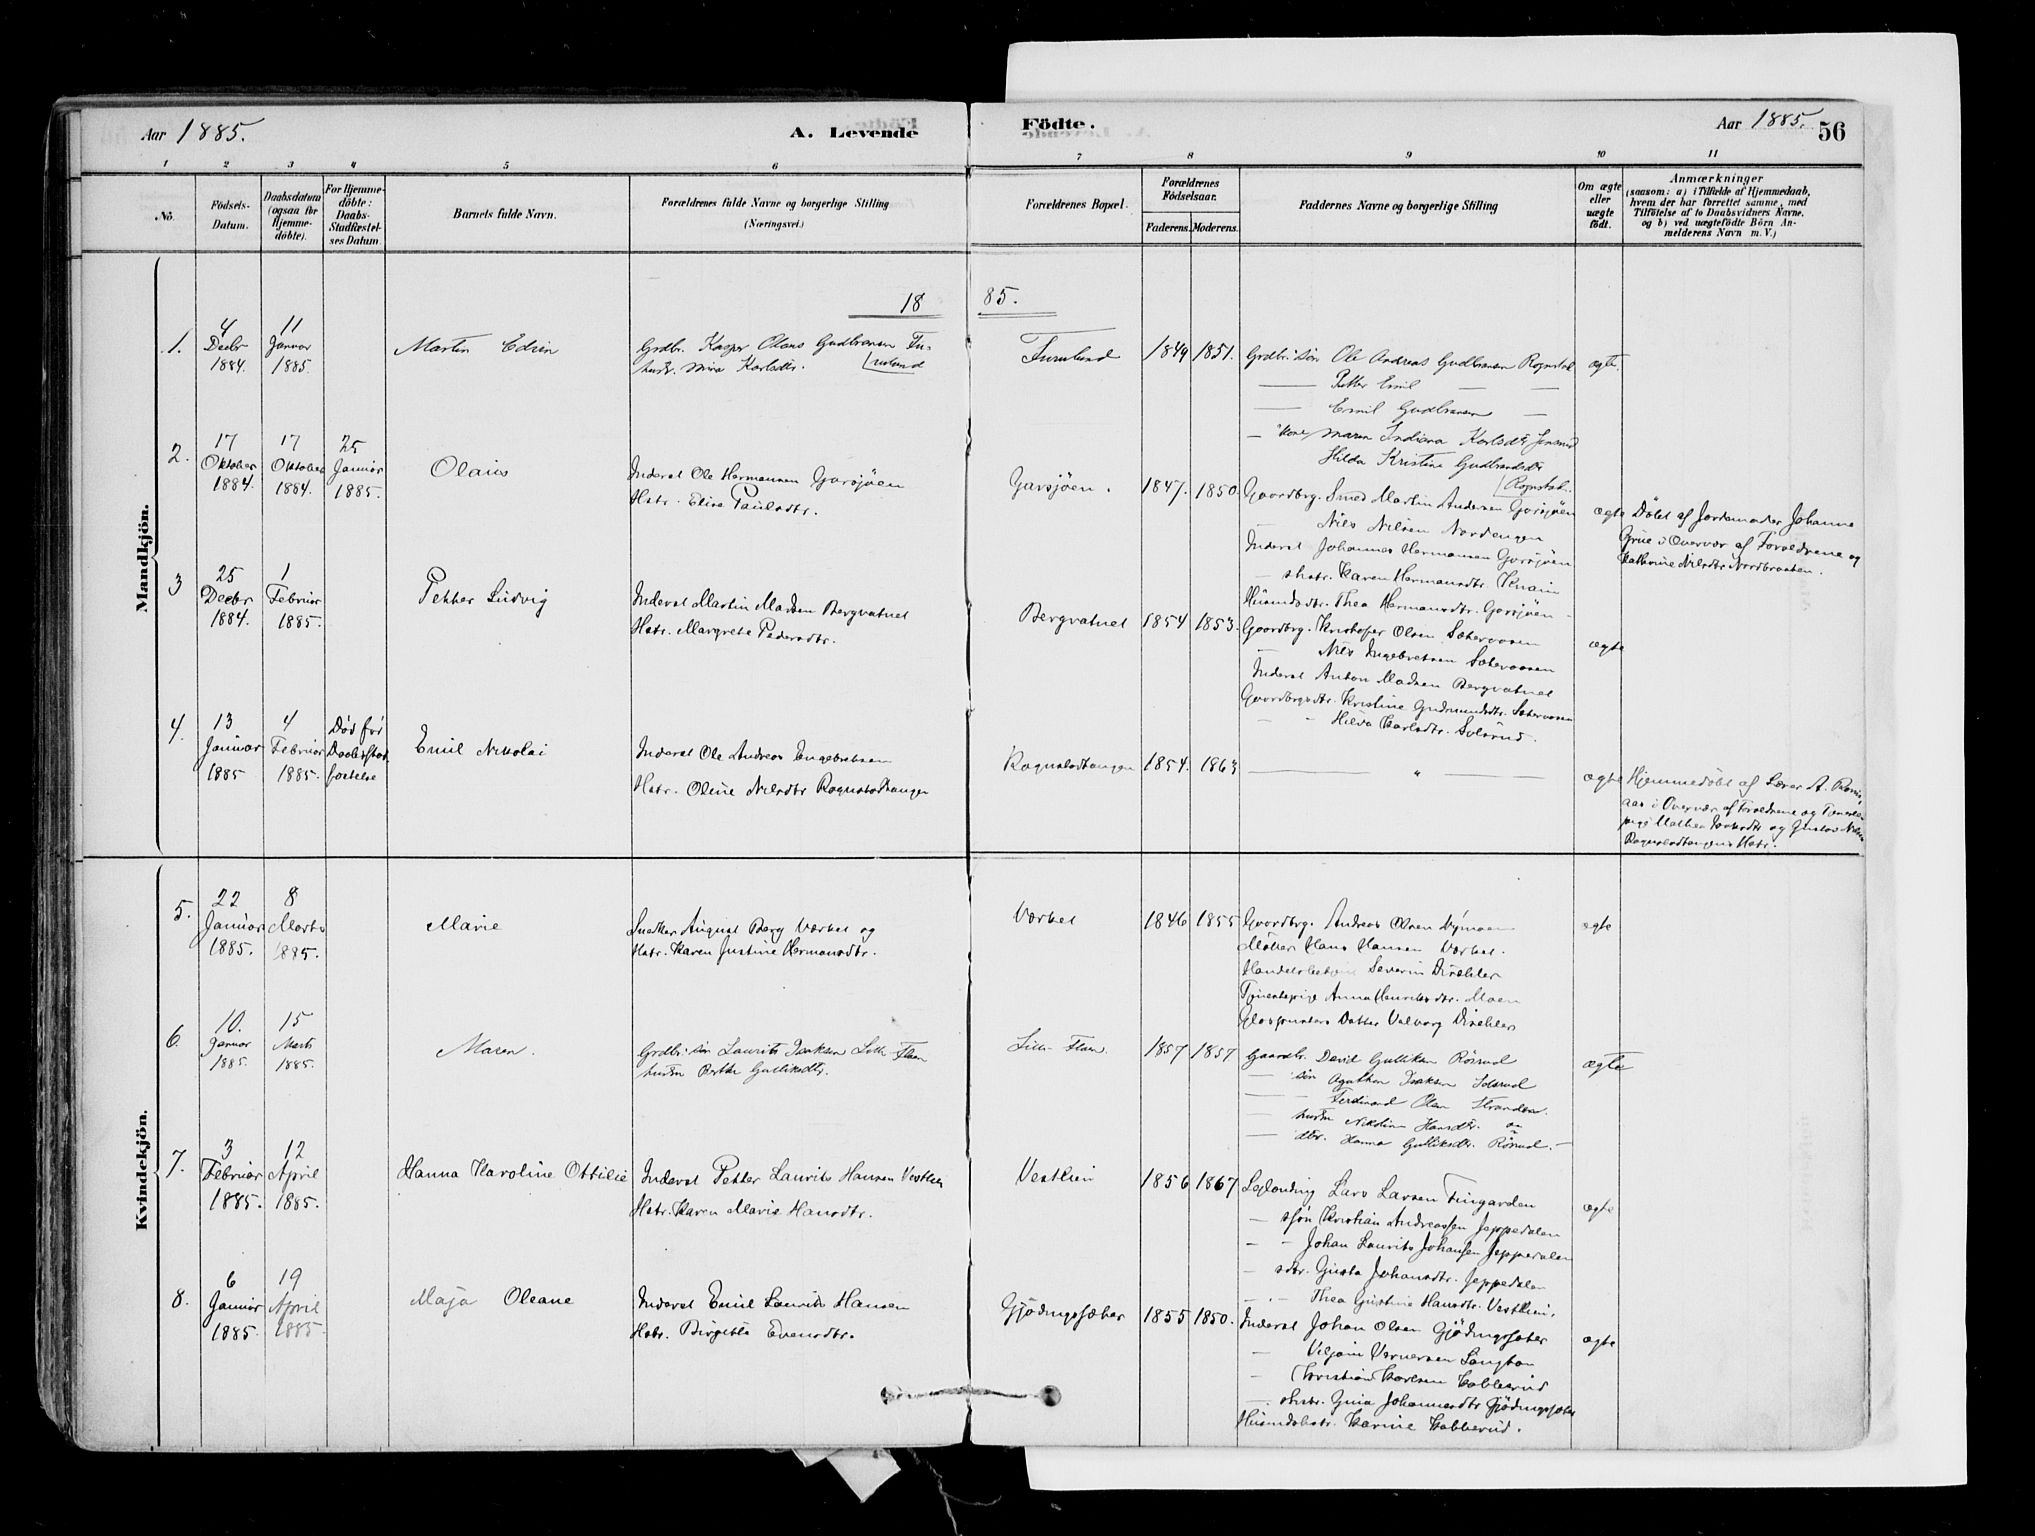 Aar 1885.
A. Levende
Födte.
Aar 1885.
56
1 2 3 4 5 6 7 8 9 10 11
No.
Födsels-
Datum.
Daabsdatum
(ogsaa for
Hjemme-
döbte).
For Hjemme-
döbte:
Daabs-
Stadfæstel-
ses Datum
Barnets fulde Navn.
Forældrenes fulde Navne og borgerlige Stilling
(Næringsvei.)
Forældrenes Bopæl.
Forældrenes
Födselsaar.
Faderens. Moderens.
Faddernes Navne og borgerlige Stilling
Om ægte
eller
uægte
født.
Anmærkninger
(saasom: a) i Tilfælde af Hjemmedaab,
hvem der har forrettet samme, med
Tilföielse af to Daabsvidners Navne,
og b) ved uægtefödte Börn An-
melderens Navn m. V.)
1885.
Mandkjön.
1.
4
Decbr
1884.
11
Januar
1885.
Martin Edvin
Grdbr. Kasper Olaus Gudbransen Fu-
rulund
hustr. Mina Karlsdtr.
Furulund
1849 1851.
Grdbr. sön Ole Andreas Gudbransen Rognstad
Petter Emil
Emil Gudbransen
kone Maren Indiana Karlsdtr
Hilda Kristine Gudbrandsdtr
Rognstad.
ægte
2.
17
Oktober
1884.
17
Oktober
1884.
25
Januar
1885.
Olaus
Inderst Ole Hermansen Garsjöen
Hstr. Elise Paulsdtr.
Garsjöen.
1847. 1850.
Gaardbrg. Smed Martin Andersen Garsjöen
Nils Nilsen Nordengen
Inderst Johannes Hermansen Garsjöen
shstr. Karen Hermansdtr. Knain
Husmdsdtr. Thea Hermansdtr. Garsjöen
ægte
Döbt af Jordemoder Johanne
Grue i Overvær af Forældrene og
Kathrine Nilsdtr Nordbraaten.
3
25
Decbr
1884.
1
Februar
1885.
Petter Ludvig
Inderst Martin Madsen Bergvatnet
Hstr. Margrete Pedersdtr.
Bergvatnet
1854 1853.
Gaardbrg. Kristofer Olsen Sæteraasen
Nils Ingebretsen Sæteraasen
Inderst Anton Madsen Bergvatnet
Gaardbrgsdtr. Kristine Gudmundsdtr. Sæteraasen
Hilda Karlsdtr. Solsrud.
ægte
4.
13
Januar
1885
4
Februar
1885.
Död för
Daabsstad-
fæstelse
Emil Nikolai
Inderst Ole Andreas Engebretsen
Hstr. Oline Nilsdtr Rognstadtangen
Rognstadtangen
1854. 1863
"
ægte
Hjemmedöbt af Lærer A.
i Overvær af Forældrene og Tjeneste-
pige Mathea Isaksdtr og Gustav Nilsen
Rognstadtangens Hstr.
Kvindekjön.
5.
22
Januar
1885.
8
Marts
1885.
Marie
Snedker August Berg Værket og
Hstr. Karen Justine Hermansdtr.
Værket
1846 1855
Gaardbrg. Andreas Olsen Dýmoen
Möller Hans Hansen Værket.
Handelsbetjent Severin Direhler
Tjenestepige Anna Henriksdtr. Moen
Glaspusters Datter Valborg Direhler
ægte
6.
10.
Januar
1885.
15
Marts
1885.
Maren.
Grdbr. sön Laurits Isaksen Lille Flaen
hustru Berthe Gulliksdtr.
Lille Flaen.
1857 1857
Gaardbr. David Gulliksen Rösrud
sön Agathon Isaksen Solsrud
Ferdinand Olsen Stranden.
hustru Nikoline Hansdtr.
dtr. Hanna Gulliksdtr. Rösrud.
ægte
7.
3
Februar
1885.
12
April
1885.
Hanna Karoline Ottilie
Inderst Petter Laurits Hansen Vestlien
Hstr. Karen Marie Hansdtr.
Vestlien
1856 1867
Lars Larsen Fingarden
sjön Kristian Andreassen Jeppedalen
Johan Laurits Johansen Jeppedalen
sdtr. Gusta Johansdtr. Jeppedalen
Thea Gustine Hansdtr. Vestlien.
ægte
8.
6
Januar
1885.
19
April
1885.
Maja Oleane
Inderst Emil Laurits Hansen
Hstr. Birgitte Evensdtr.
Gjödingssæter
1855 1850.
Inderst Johan Olsen Gjödingssæter
Viljam Vernersen Langton
Kristian Karlsen Kobberud
shstr. Gina Johannesdtr Gjödingssæter
Husmdshstr. Karine Kobberud.
ægte